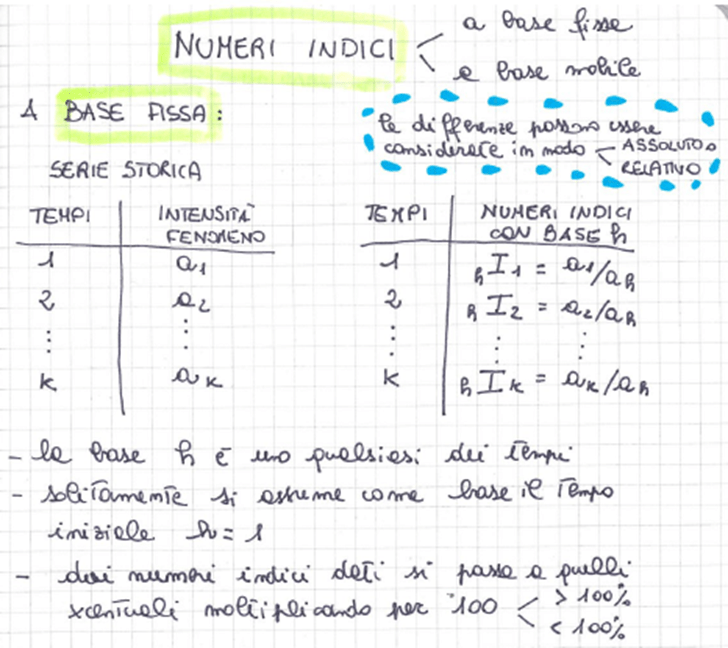 NUMERI INDICI < a base fissa
e base mobile
A BASE FISSA:
le differenze possono essere
considerate in modo – ASSOLUTO o
RELATIVO
SERIE STORICA
TEMPI INTENSITÀ FENOMENO
1 a1
2 a2
⋮ ⋮
k ak
TEMPI NUMERI INDICI CON BASE h
1 hI1 = a1/ah
2 hI2 = a2/ah
⋮ ⋮ ⋮
k hIk = ak/ah
- la base h è uno qualsiasi dei tempi
- solitamente si assume come base il tempo
iniziale h = 1
- dai numeri indici dati si passa a quelli
xcentuali moltiplicando per 100 < > 100%
< 100%